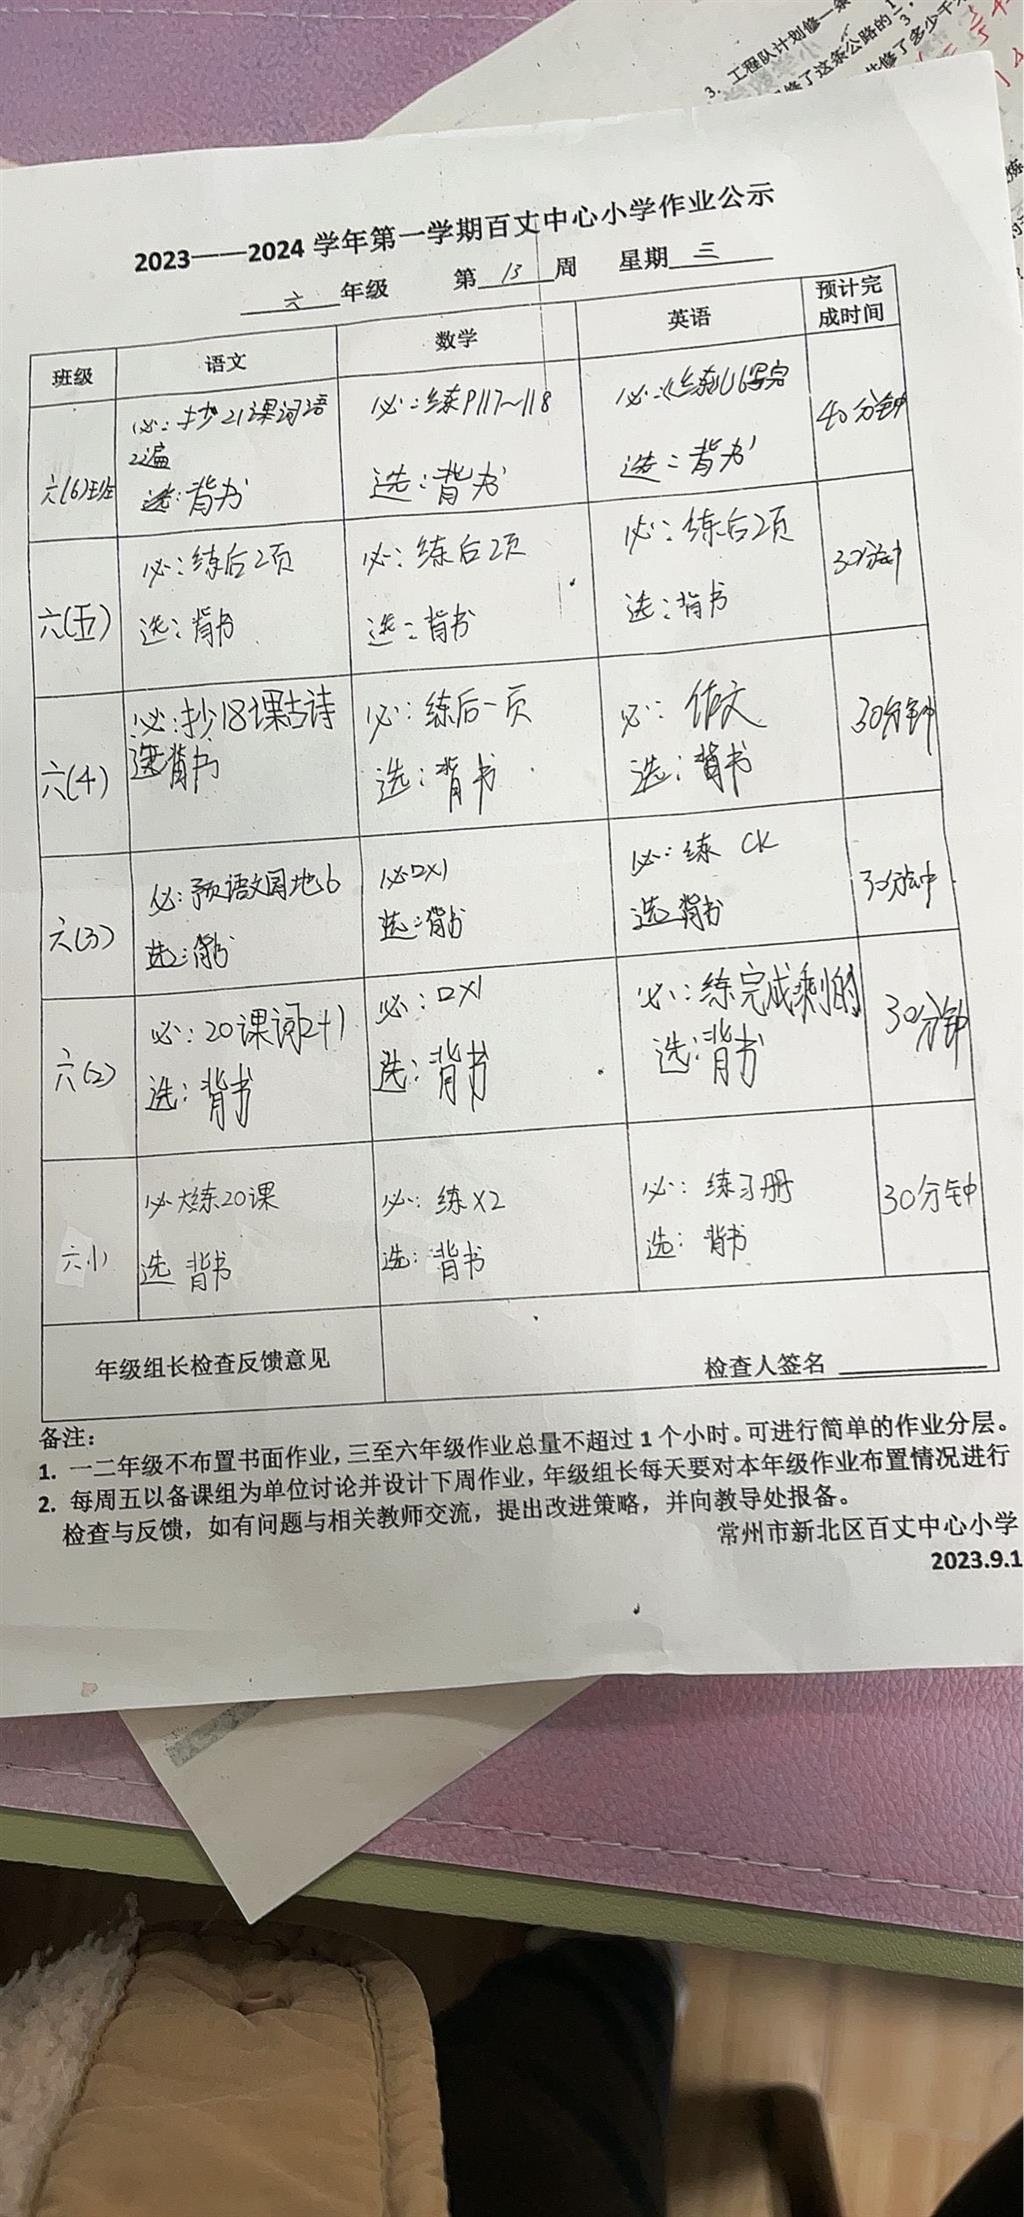 3. 工程队计划修一条
修了这条公路的
修了多少千
2023——2024 学年第一学期百丈中心小学作业公示
六 年级 第 13 周 星期 三
班级 语文 数学 英语 预计完成时间
六(6)班
必：抄21课词语
2遍
选：背书
必：练P117~118
选：背书
必：练U6写完
选：背书
40分钟
六(五)
必：练后2页
选：背书
必：练后2页
选：背书
必：练后2页
选：背书
30分钟
六(4)
必：抄18课古诗
选背书
必：练后一页
选：背书
必：作文
选：背书
30分钟
六(3)
必：预语文园地6
选：背书
必口x1
选：背书
必：练 CK
选 背书
30分钟
六(2)
必：20课词2+1
选：背书
必：口x1
选：背书
必：练完成剩的
选：背书
30分钟
六(1)
必 大练20课
选 背书
必：练x2
选：背书
必：练习册
选：背书
30分钟
年级组长检查反馈意见
检查人签名
备注：
1. 一二年级不布置书面作业，三至六年级作业总量不超过 1 个小时。可进行简单的作业分层。
2. 每周五以备课组为单位讨论并设计下周作业，年级组长每天要对本年级作业布置情况进行
检查与反馈，如有问题与相关教师交流，提出改进策略，并向教导处报备。
常州市新北区百丈中心小学
2023.9.1